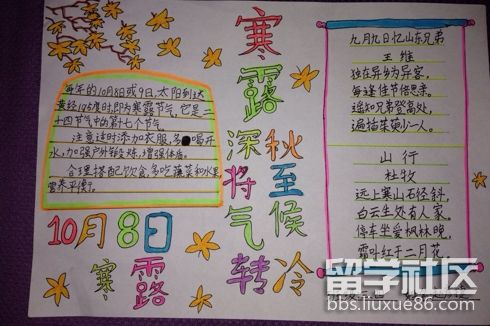 寒露
深秋
将至
气候
转冷
每年的10月8日或9日,太阳到达
黄经195度时,即为寒露节气,它是二
十四节气中的第十七个节气。
注意适时添加衣服,多喝开
水,加强户外锻炼,增强体质。
合理搭配饮食,多吃蔬菜和水果,
营养平衡
10月8日
寒露
九月九日忆山东兄弟
王维
独在异乡为异客,
每逢佳节倍思亲。
遥知兄弟登高处,
遍插茱萸少一人。
山行
杜牧
远上寒山石径斜,
白云生处有人家。
停车坐爱枫林晚,
霜叶红于二月花。
留学社区
bbs.liuxue86.com